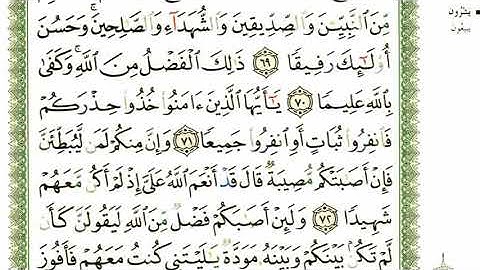 مِّنَ ٱلنَّبِيِّـۧنَ وَٱلصِّدِّيقِينَ وَٱلشُّهَدَآءِ وَٱلصَّـٰلِحِينَۚ وَحَسُنَ
أُو۟لَـٰٓئِكَ رَفِيقًا ٦٩ ذَٰلِكَ ٱلْفَضْلُ مِنَ ٱللَّهِۚ وَكَفَىٰ
بِٱللَّهِ عَلِيمًا ٧٠ يَـٰٓأَيُّهَا ٱلَّذِينَ ءَامَنُوا۟ خُذُوا۟ حِذْرَكُمْ
فَٱنفِرُوا۟ ثُبَاتٍ أَوِ ٱنفِرُوا۟ جَمِيعًا ٧١ وَإِنَّ مِنكُمْ لَمَن لَّيُبَطِّئَنَّ
فَإِنْ أَصَـٰبَتْكُم مُّصِيبَةٌ قَالَ قَدْ أَنْعَمَ ٱللَّهُ عَلَىَّ إِذْ لَمْ أَكُن مَّعَهُمْ
شَهِيدًا ٧٢ وَلَئِنْ أَصَـٰبَكُمْ فَضْلٌ مِّنَ ٱللَّهِ لَيَقُولَنَّ كَأَن
لَّمْ تَكُنۢ بَيْنَكُمْ وَبَيْنَهُۥ مَوَدَّةٌ يَـٰلَيْتَنِى كُنتُ مَعَهُمْ فَأَفُوزَ
يَشْرُونَ
يبيعون